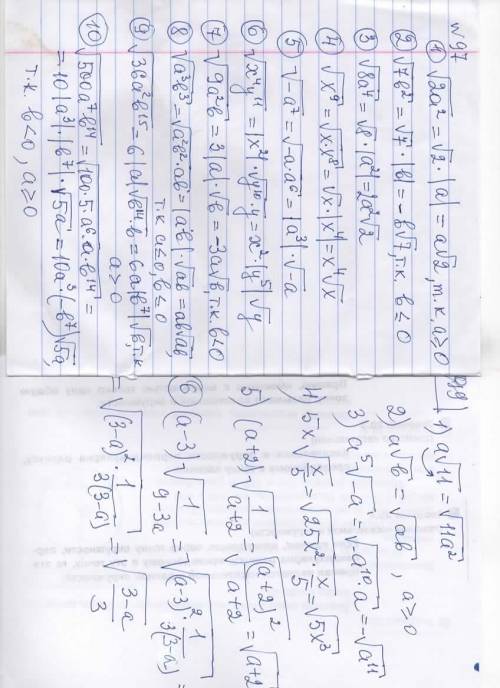 № 97
① √2a² = √2 · |a| = a√2, т.к. a ≥ 0
② √7b² = √7 · |b| = -b√7, т.к. b ≤ 0
③ √8a⁴ = √8 · |a²| = 2a²√2
④ √x⁹ = √x·x⁸ = √x · |x⁴| = x⁴√x
⑤ √-a⁷ = √-a·a⁶ = |a³| · √-a
⑥ √x⁴y¹¹ = |x²| · √y¹⁰·y = x² · |y⁵| √y
⑦ √9a²b = 3|a| · √b = -3a√b, т.к. b < 0
⑧ √a³b³ = √a²b²·ab = |ab| · √ab = ab√ab,
т.к a ≤ 0, b ≤ 0
⑨ √36a²b¹⁵ = 6|a|√b¹⁴·b = 6a|b⁷|√b, т.к
a > 0
⑩ √500a⁷b¹⁴ = √100·5·a⁶·a·b¹⁴ =
= 10|a³| · |b⁷| · √5a = 10a³ · (-b⁷)√5a,
т.к b < 0, a ≥ 0
1) a√11 = √11a²
2) a√b = √ab, a ≥ 0
3) a⁵√-a = √-a¹⁰·a = -√a¹¹
4) 5x√x/5 = √25x²·x/5 = √5x³
5) (a+2)√1/a+2 = √(a+2)²/a+2 = √a+2
⑥ (a-3)√1/9-3a = √(a-3)²·1/3(3-a) =
= √(3-a)²·1/3(3-a) = √3-a/3